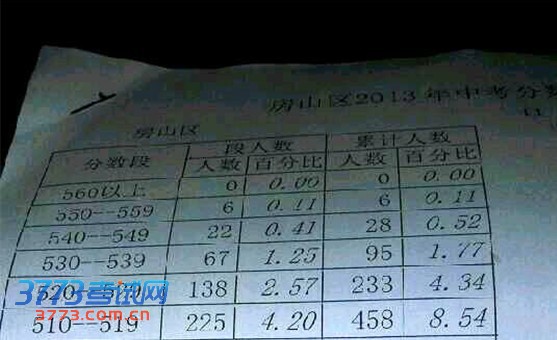 房山区2013年中考分数
房山区
分数段 段人数 累计人数
人数 百分比 人数 百分比
560以上 0 0.00 0 0.00
550--559 6 0.11 6 0.11
540--549 22 0.41 28 0.52
530--539 67 1.25 95 1.77
520--529 138 2.57 233 4.34
510--519 225 4.20 458 8.54
3773考试网
3773.com.cn